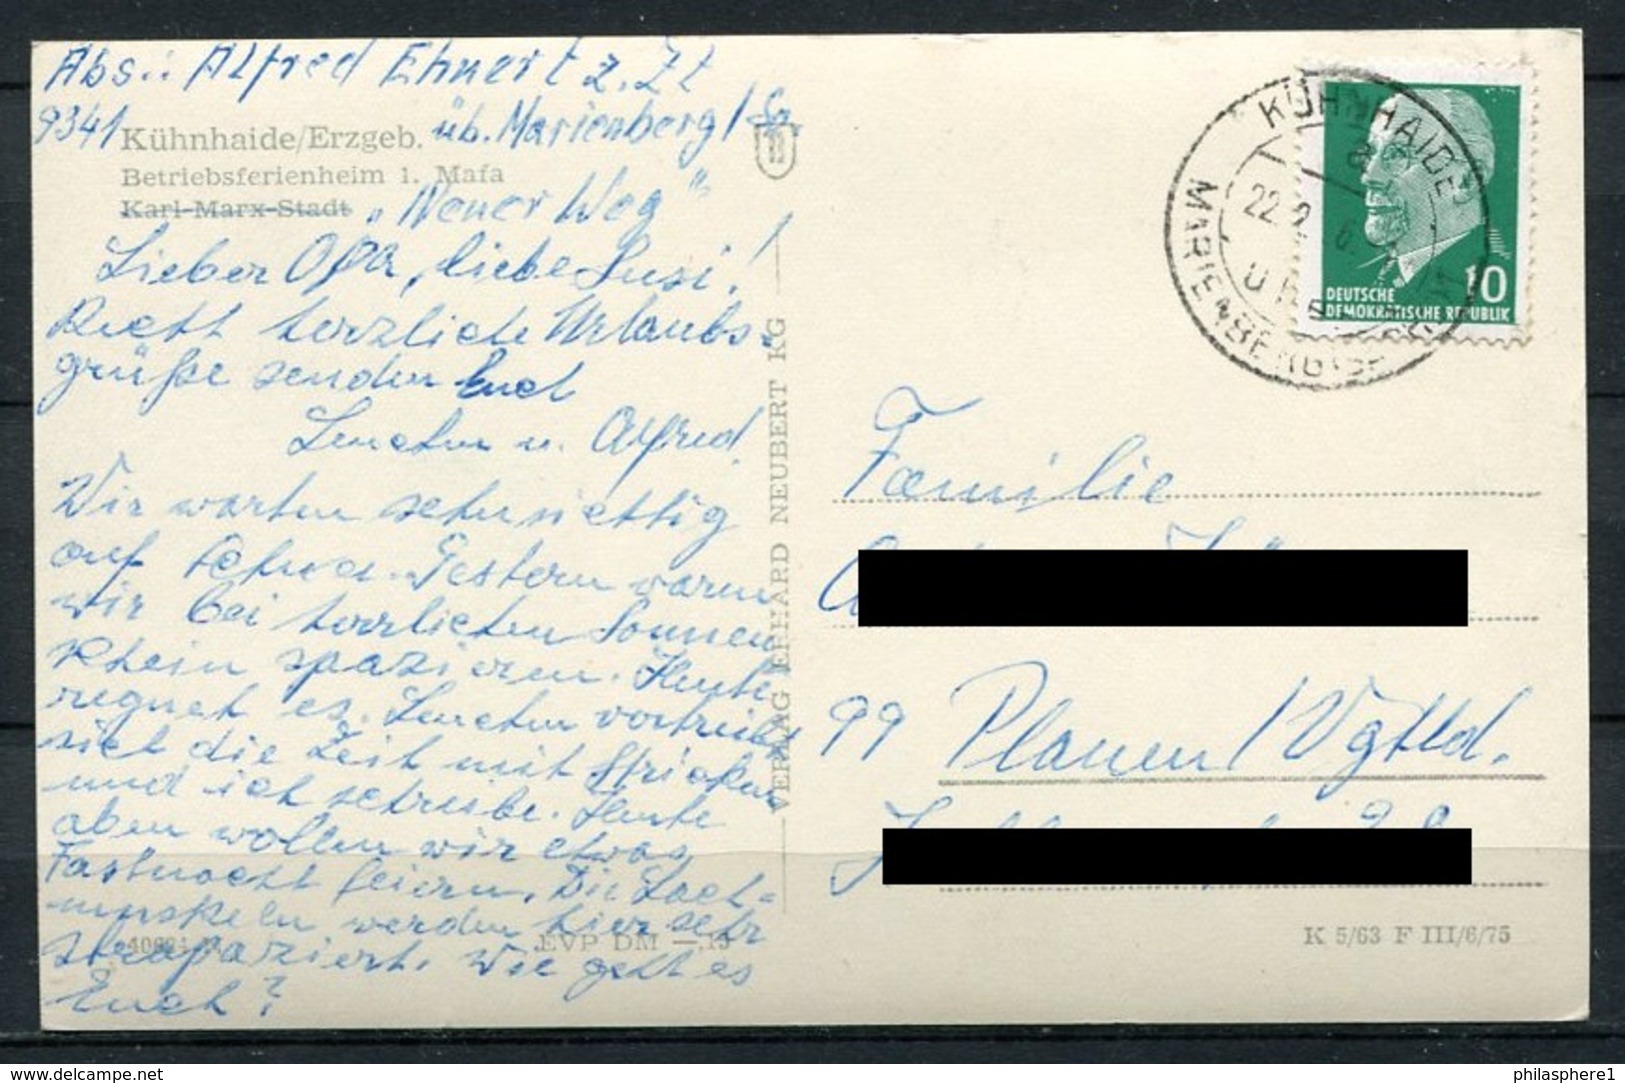 Abs.: Alfred Ehnert z. Zt
9341 Kühnhaide/Erzgeb. üb. Marienberg/Sa.
Betriebsferienheim 1. Mafa
Karl-Marx-Stadt „Neuer Weg"
Lieber Opa, liebe Susi!
Recht herzliche Urlaubs-
grüße senden Euch
Lenchen u. Alfred.
Wir warten sehnsüchtig
auf Schnee. Gestern waren
wir bei herrlichen Sonnen
schein spazieren. Heute
regnet es. Lenchen vertreibt
sich die Zeit mit Stricken
und ich schreibe. Heute
aben wollen wir etwas
Fastnacht feiern. Die Lach-
muskeln werden hier sehr
strapaziert. Wie geht es
Euch?
EVP DM —,15
VERLAG ERHARD NEUBERT KG
KÜHNHAIDE
MARIENBERG
22.2
10
DEUTSCHE
DEMOKRATISCHE REPUBLIK
Familie
99 Plauen/Vgtld.
K 5/63 F III/6/75
www.delcampe.net
philasphere1